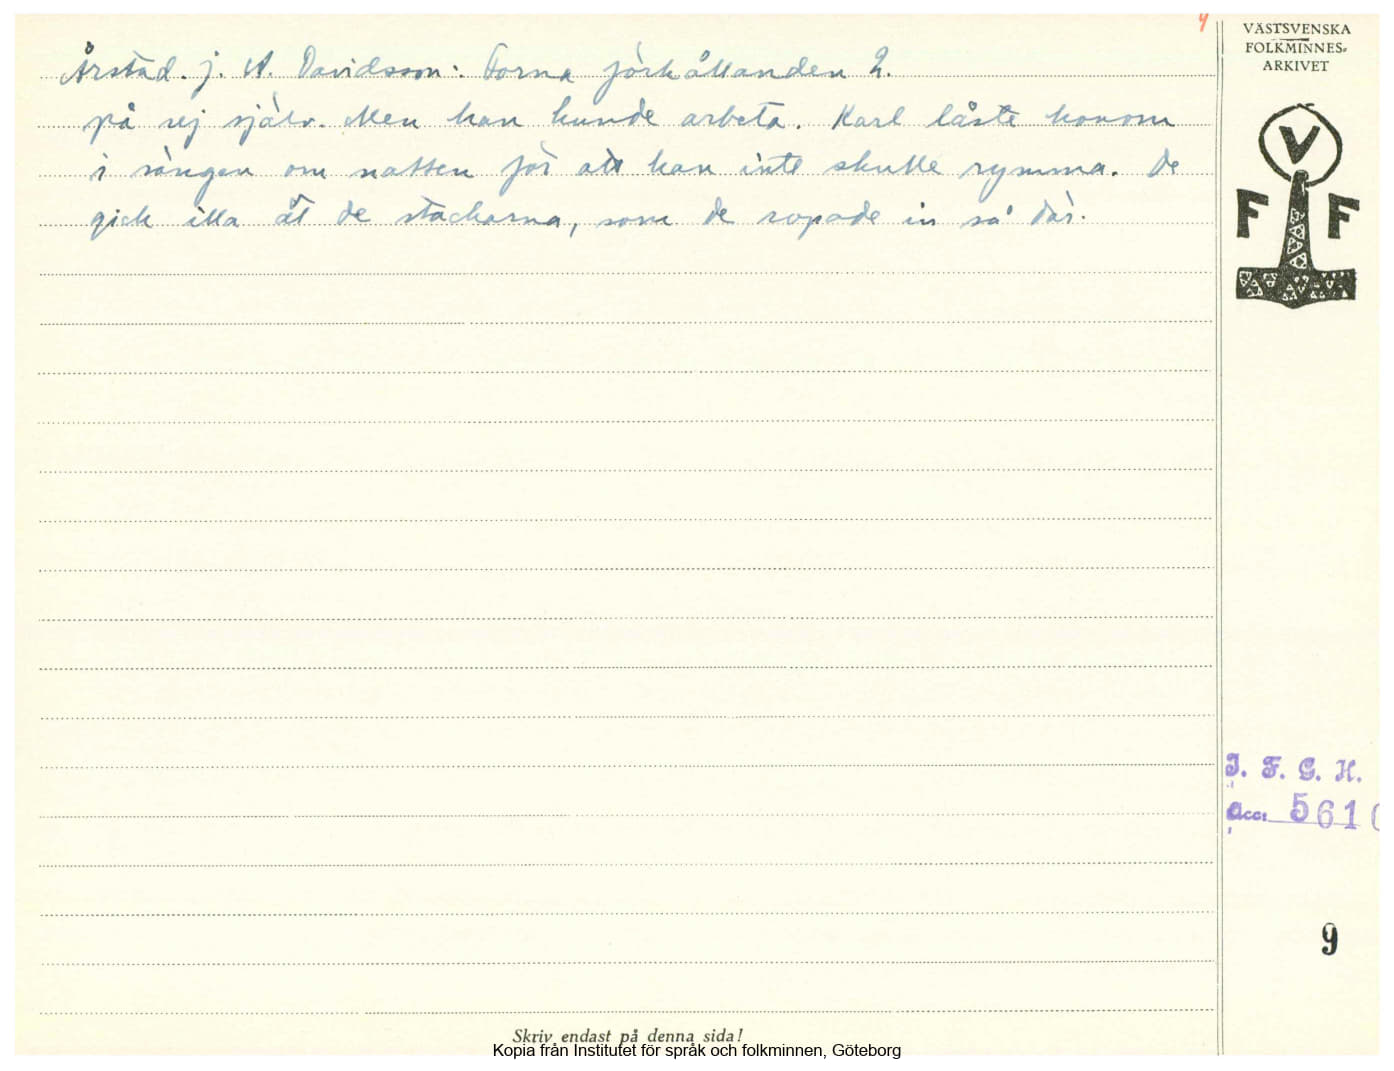 4
VÄSTSVENSKA
FOLKMINNES-
ARKIVET
Årstad. J. A. Davidsson: Forna förhållanden 2.
på sej själv. Men han kunde arbeta. Karl låste honom
i sängen om natten för att han inte skulle rymma. De
gick illa åt de stackarna, som de ropade in så där.
V
F F
I. F. G. H.
Acc: 5610
9
Skriv endast på denna sida!
Kopia från Institutet för språk och folkminnen, Göteborg